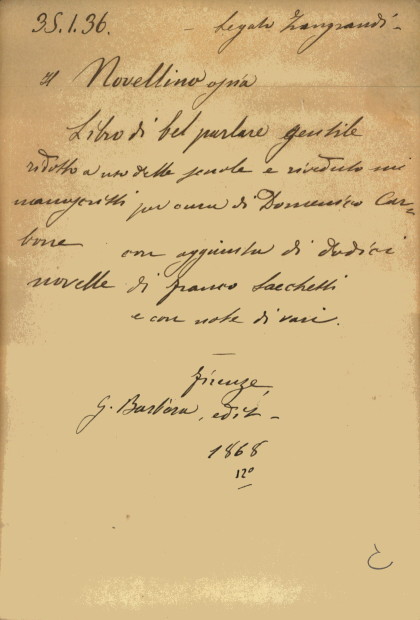 35.1.36. - Legato Zangrandi -
Il Novellino ossia
Libro di bel parlare gentile
ridotto a uso delle scuole e riveduto sui
manoscritti per cura di Domenico Car=
bone con aggiunta di dodici
novelle di Franco Sacchetti
e con note di vari.
Firenze,
G. Barbèra, edit -
1868
12º